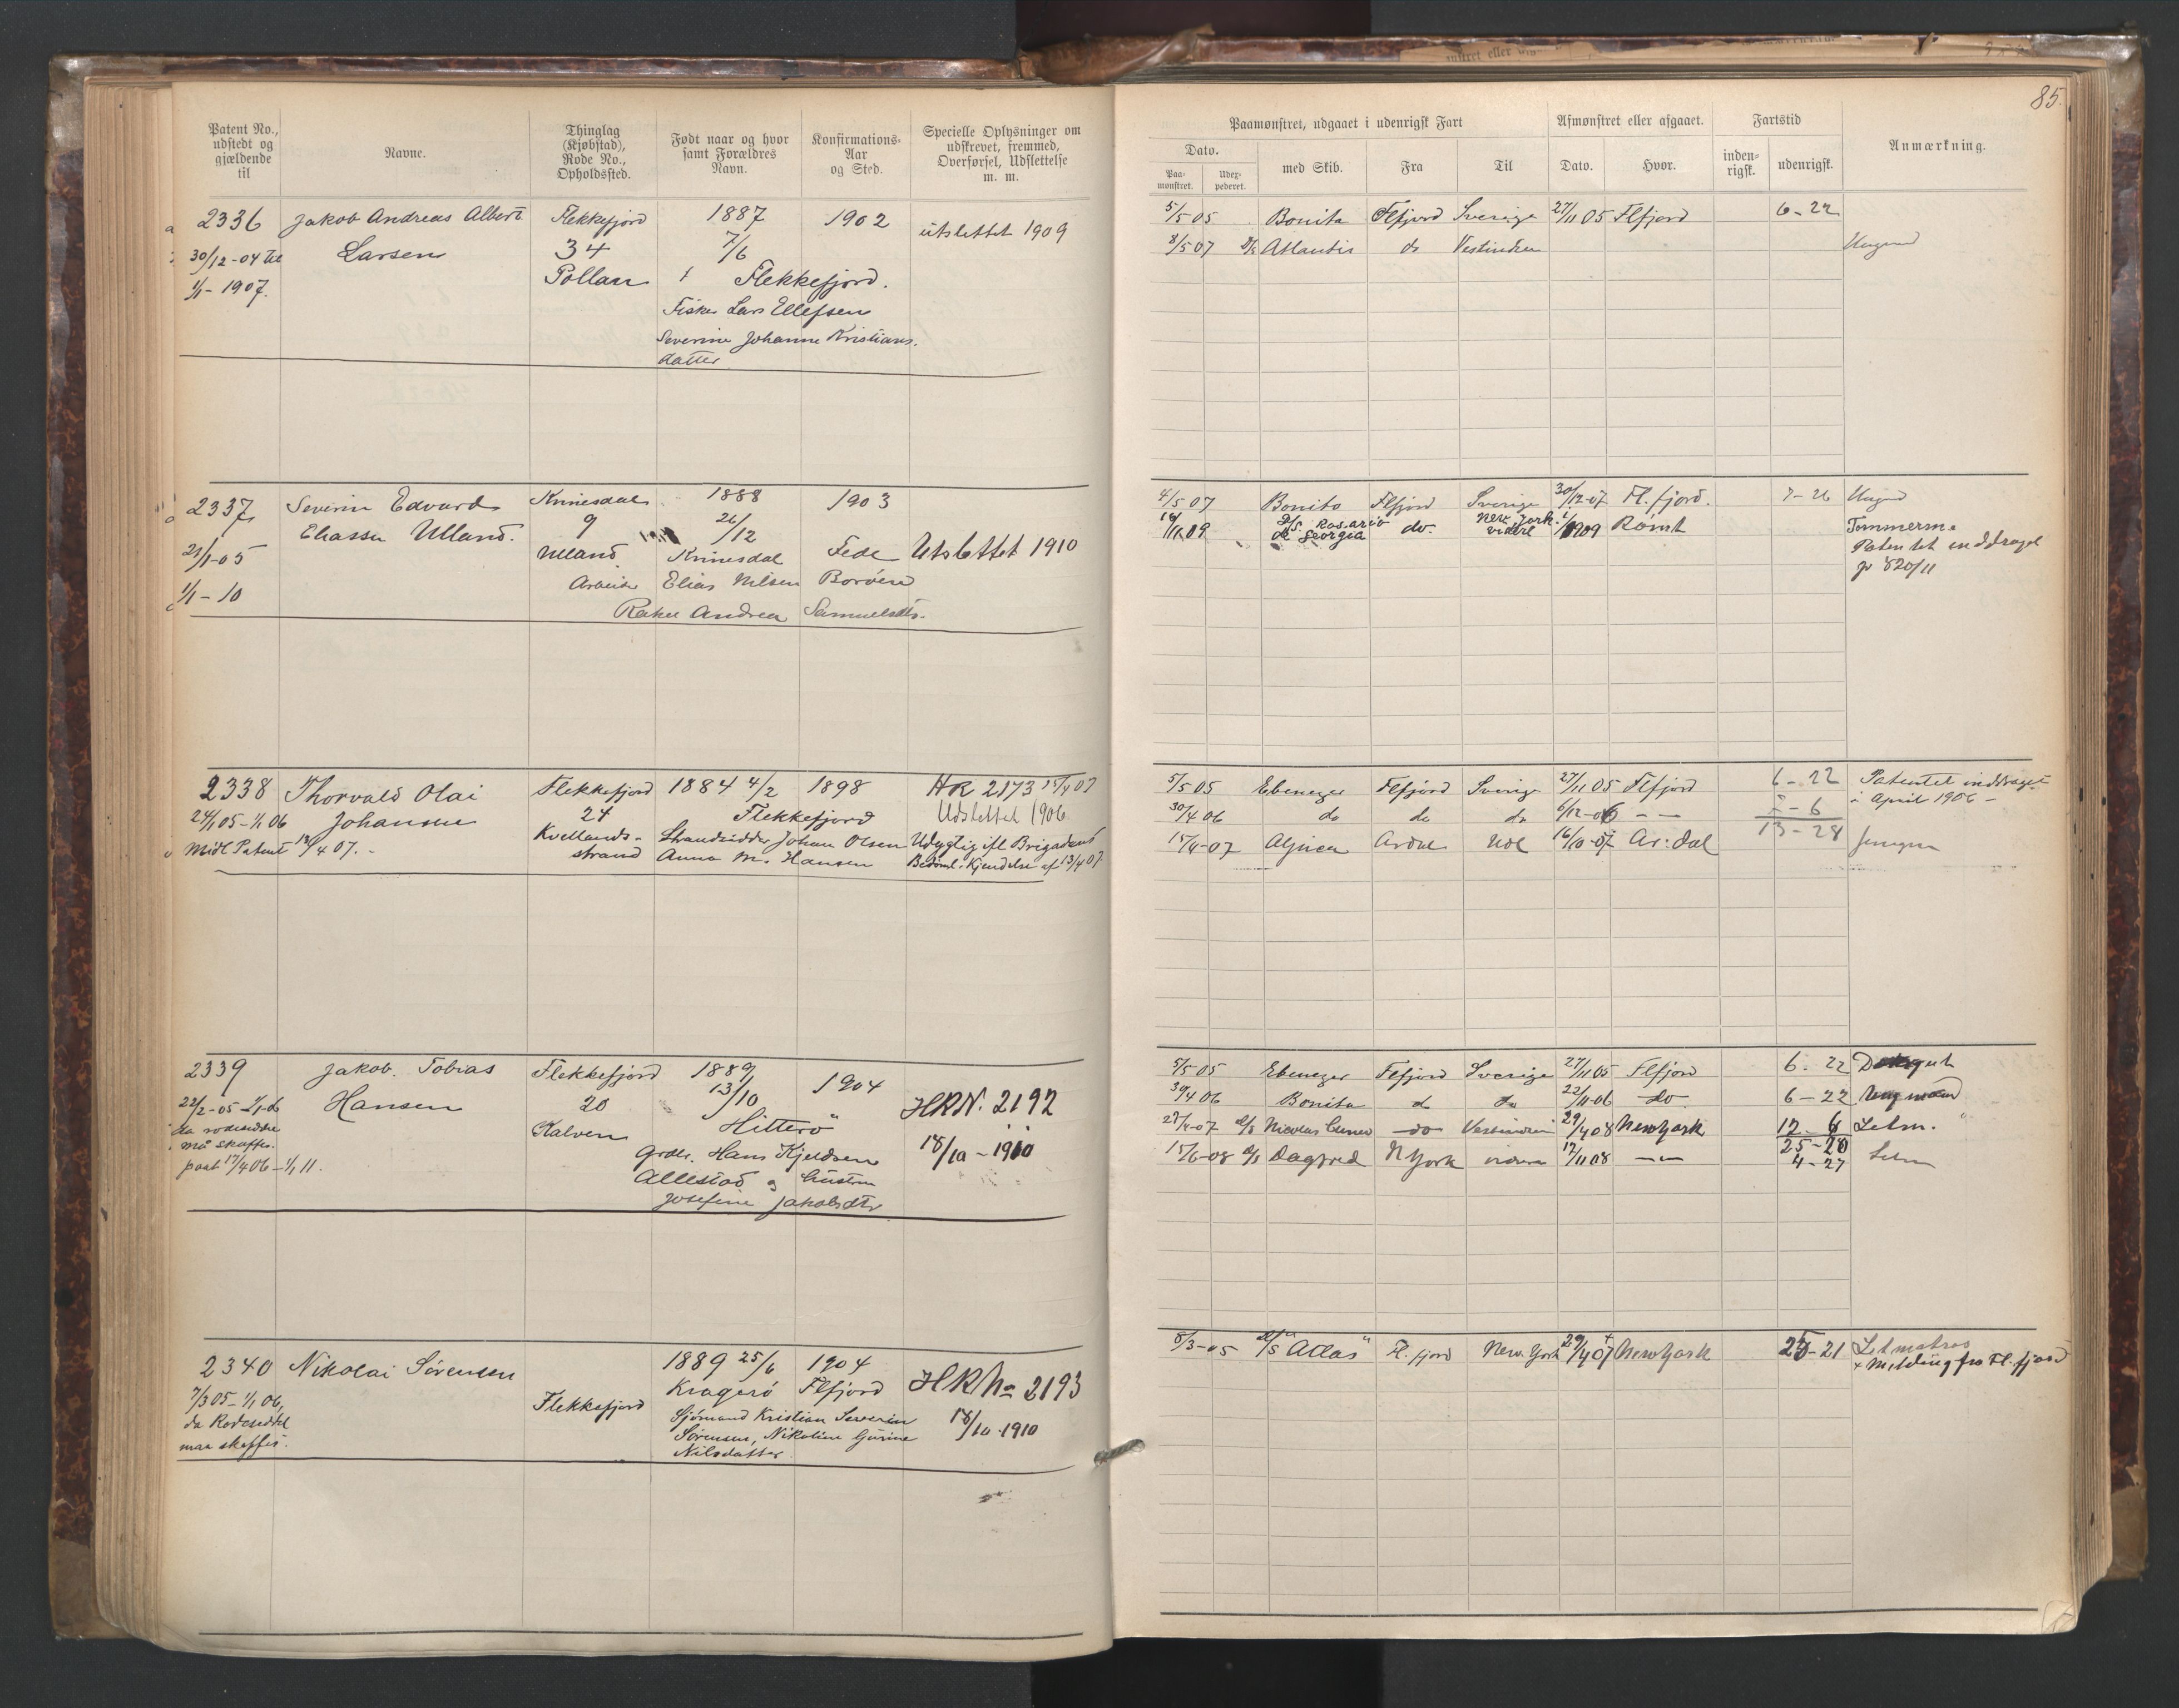 85.
Patent No., udstedt og gjældende til
Navne.
Thinglag (Kjøbstad), Rode No., Opholdssted.
Født naar og hvor samt Forældres Navn.
Konfirmations-Aar og Sted.
Specielle Oplysninger om udskrevet, fremmed, Overførsel, Udslettelse m. m.
Paamønstret, udgaaet i udenrigsk Fart
Dato.
Paa-mønstret.
Udex-pederet.
med Skib.
Fra
Til
Afmønstret eller afgaaet.
Dato.
Hvor.
Fartstid
inden-rigsk.
udenrigsk.
Anmærkning.
2336 Jakob Andreas Albert Flekkefjord 1887 1902 utslettet 1909
30/12-04 til Larsen 34 7/6
1/1-1907. Pollan Flekkefjord.
Fisker Lars Ellefsen
Severine Johanne Kristians-
datter
5/5 05 Bonita Flfjord Sverige 27/11 05 Flfjord 6-22
8/5 07 Atlantis do Vestindien Ungmd
2337 Severin Edvard Kvinesdal 1888 1903
Eliassen Ulland. 9 26/12
21/1-05 Ulland Kvinesdal Fede Utslettet 1910
1/1-10 Arbeider Elias Nilsen Borøen
Rakel Andrea Samuelsdtr.
4/5 07 Bonita Flfjord Sverige 30/12-07 Fl.fjord. 7-26 Ungmd
16/11 09 D/S. Rosario do. New York 1909 Rømt Tømmerm.
di Georgia viderl Patentet inddraget
jr 820/11
2338 Thorvald Olai Flekkefjord 1884 4/2 1898 HR 2173 15/4 07
24/1 05-1/1 06 Johansen 24 Flekkefjord Udslettet 1906
Midl Patent 13/4 07.- Kvellands- Strandsidder Johan Olsen Udygtig ifl Brigadens
strand Anna M. Hansen Bedøml. Kjendelse af 13/4 07
5/5 05 Ebenezer Flfjord Sverige 27/11 05 Flfjord 6-22 Patentet inddraget
30/4 06 do do do 6/12-06 -- 7-6 i April 1906-
13-28
15/4-07 Aljuca Ardal Udl 16/10-07 Ar:dal Jungm
2339 Jakob. Tobias Flekkefjord 1889 1904
22/2-05-1/1-06 Hansen 20 13/10 HRN. 2192
da rodeseddel Kalven Hitterø
må skaffes. Grdbr. Hans Kjeldsen 18/10-1910
paat 17/4 06-1/1 11. Allestad og hustru
Josefine Jakobsdtr
5/5 05 Ebenezer Flfjord Sverige 27/11 05 Flfjord 6-22 Dæksgut
30/4 06 Bonita do do 22/11-06 do 6-22 Ungmand
27/4-07 D/S Nicolas Cuneo do Vestindien 29/4 08 New York 12-6 Letm.
25-20
15/6-08 D/S Dagfred N York videre 12/11 08 -- 4-27 Letm
2340 Nikolai Sørensen 1889 25/6 1904
7/3 05-1/1 06, Flekkefjord Kragerø Flfjord HRNo 2193
da Rodeseddel Sjømand Kristian Severin 18/10-1910
maa skaffes. Sørensen, Nikoline Gurine
Nilsdatter
8/3-05 D/S "Atlas" Fl.fjord New York 29/4 07 + New York 25-21 Letmatros
+ Melding fra Fl.fjord